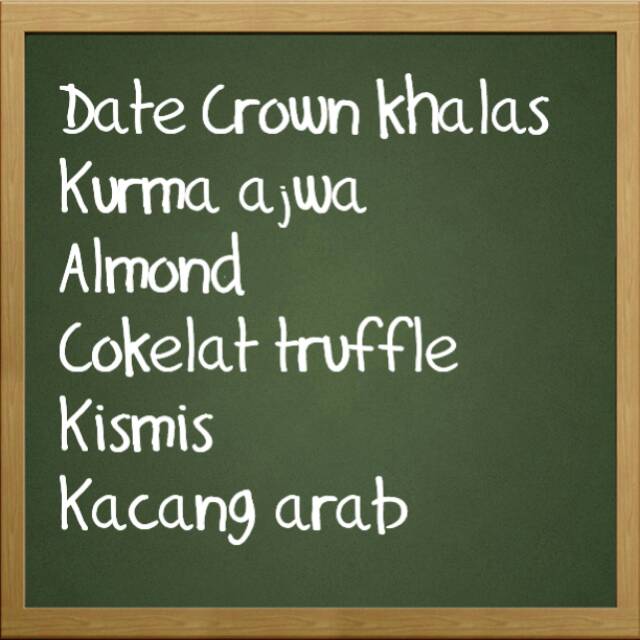 Date Crown khalas
Kurma ajwa
Almond
Cokelat truffle
Kismis
Kacang arab